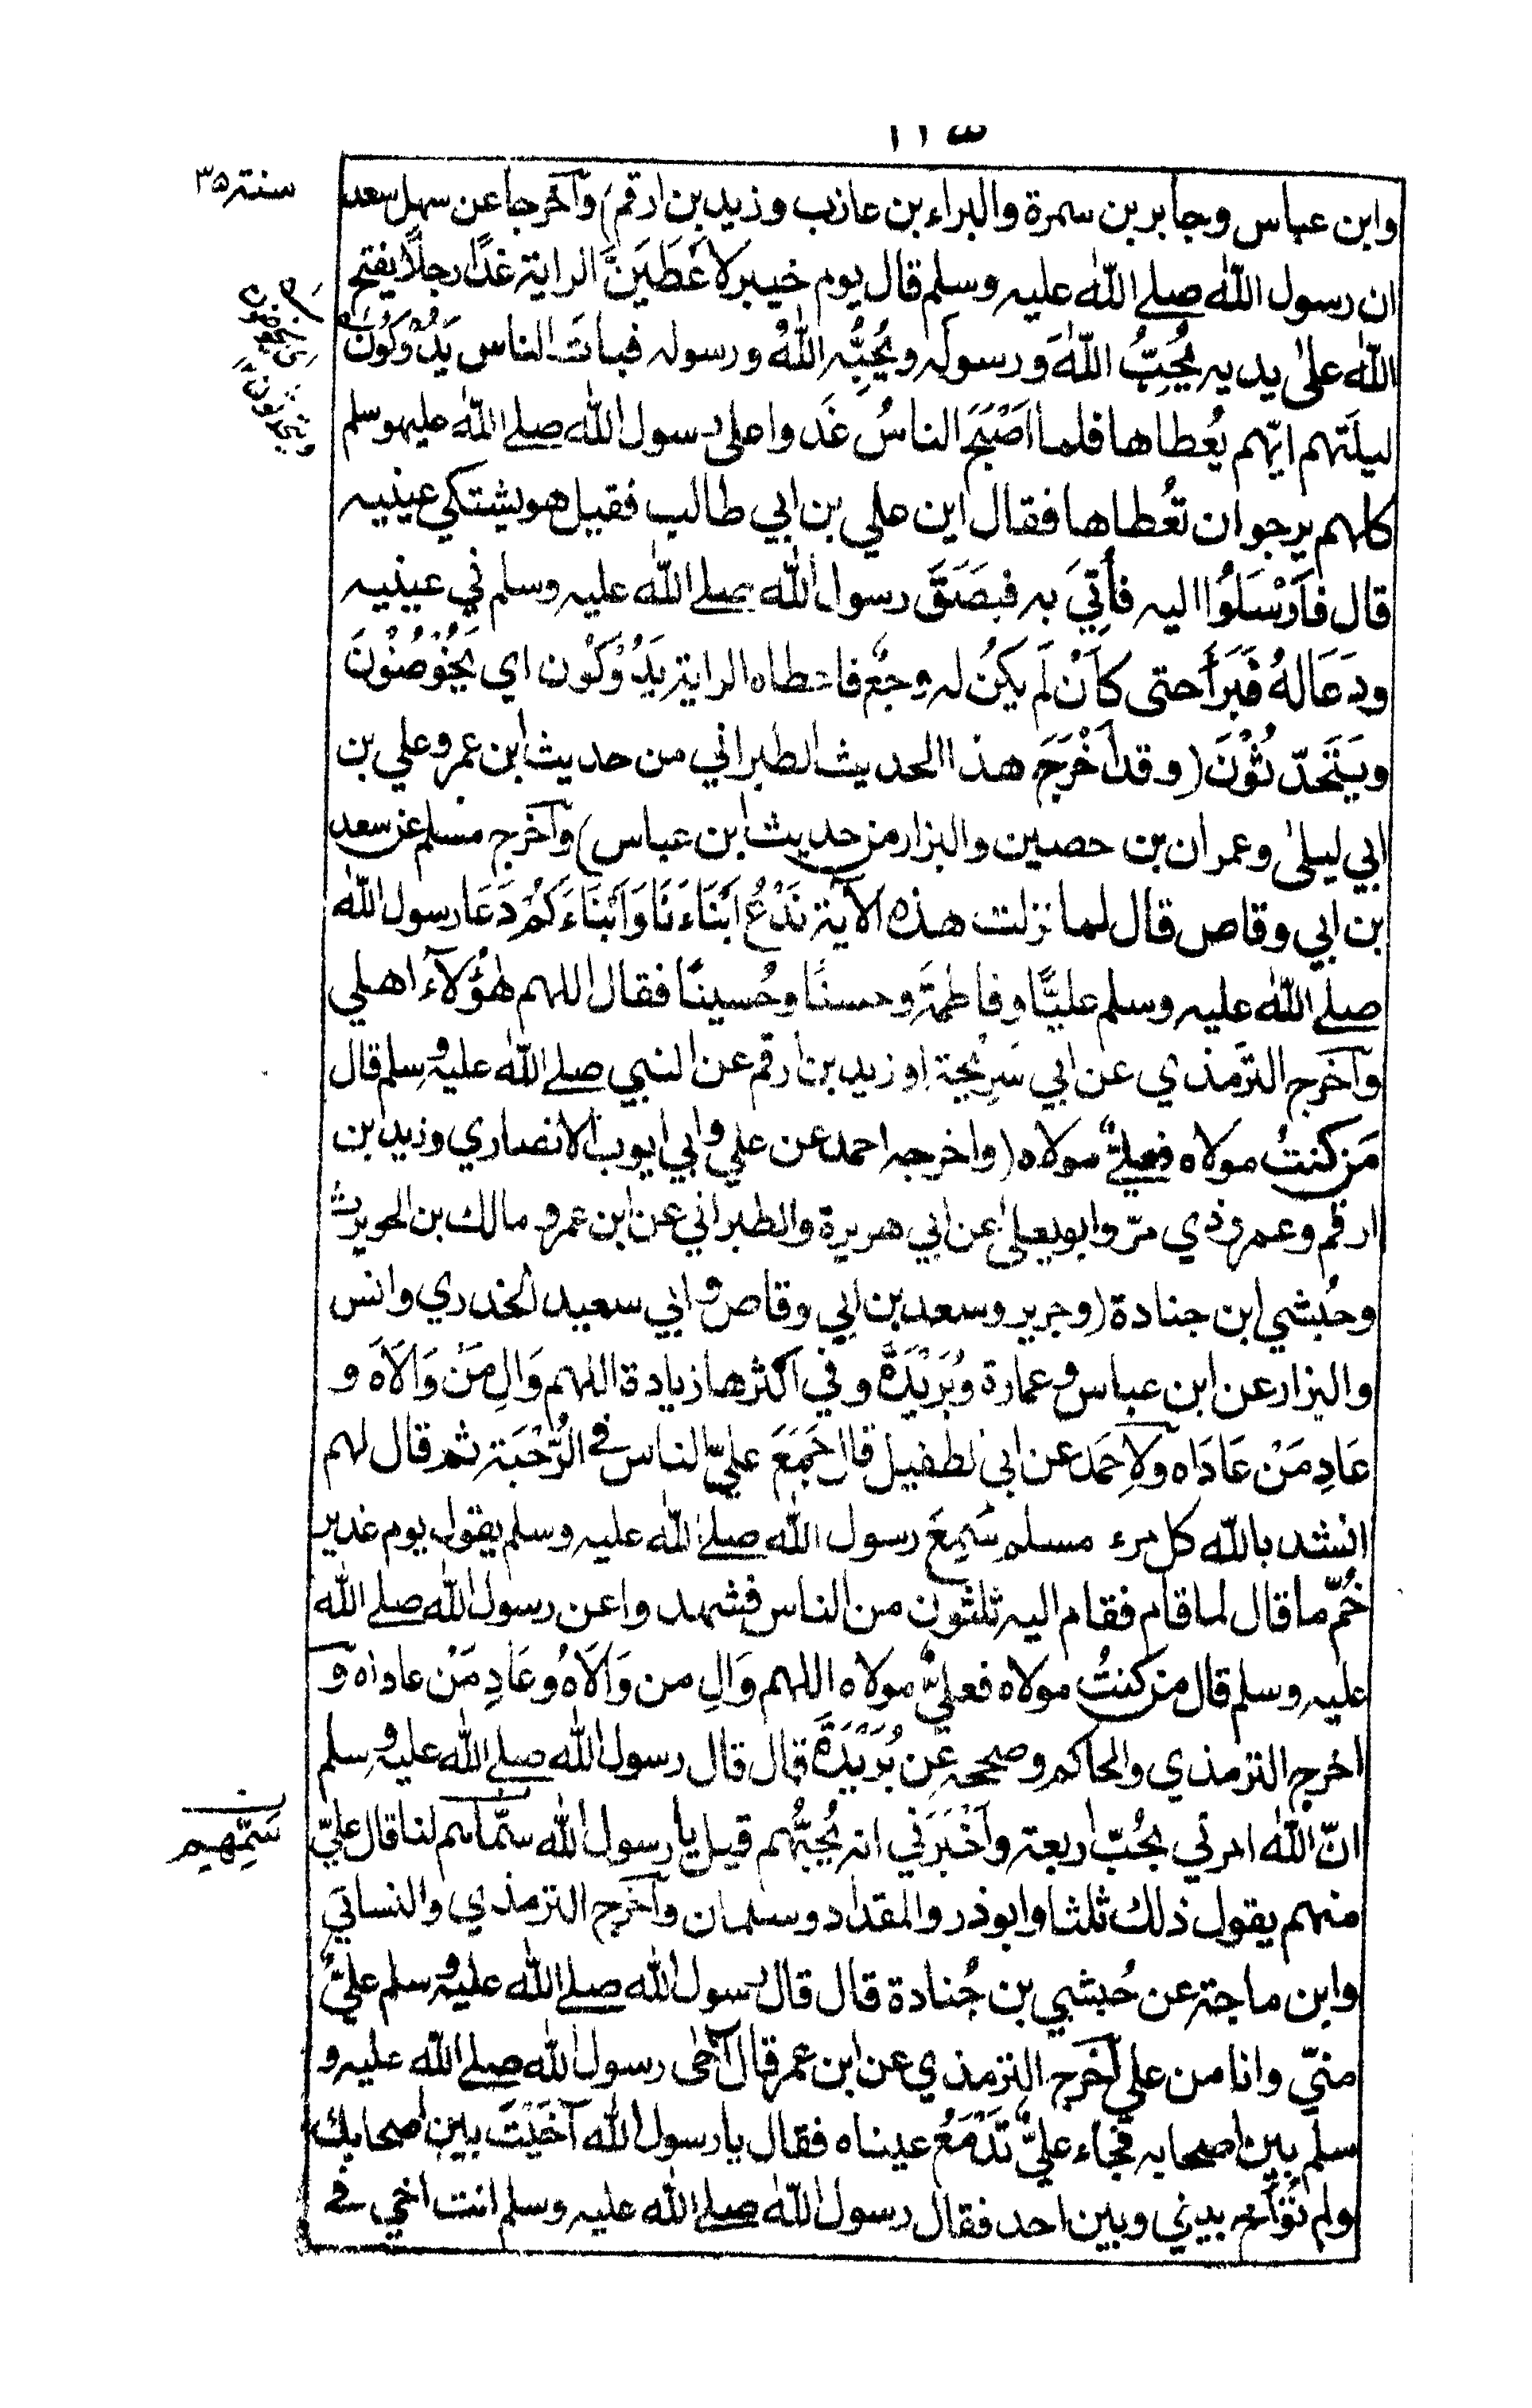 ١١٣
سنة ٣٥
وابن عباس وجابر بن سمرة والبراء بن عازب وزيد بن ارقم) وآخرجا عن سهل سعد
ان رسول الله صلے الله عليه وسلم قال يوم خيبر لاَعْطَيَنَّ الراية غدًا رجلًا يفتح
الله علىٰ يديه يُحِبُّ اللهَ ورسوله ويُحِبُّه اللهُ ورسوله فباتَ الناس يَدُوْكُوْنَ
ليلَتهم ايّهم يُعطاها فلما اَصْبَحَ الناسُ غَدَوا على رسول الله صلے الله عليه وسلم
كلهم يرجوان تُعْطاها فقال اين علي بن ابي طالب فقيل هو يشتكي عينيه
قال فاَرْسَلُوْا اليه فأُتِيَ به فبَصَقَ رسول الله صلے الله عليه وسلم في عينيه
ودَعَا لهُ فَبَرَأَ حتى كاَنْ لَم يكنْ له وجعٌ فاعطاه الراية يَدُوْكُون اي يَخُوْضُوْنَ
ويَتَحَدّثُوْنَ (وقد اَخْرَجَ هذا الحديث الطبراني من حديث ابن عمر وعلي بن
ابي ليلىٰ وعمران بن حصين والبزار من حديث ابن عباس) وآخرج مسلم عن سعد
بن ابي وقاص قال لما نزلت هذه الآية نَدْعُ اَبْنَاءَنَا وَاَبْنَاءَكُمْ دَعَا رسول الله
صلے الله عليه وسلم عليًّا وفاطمةَ وحسنًا وحُسينًا فقال اللهم هٰؤُلآء اهلي
وآخرج الترمذي عن ابي سَرِيْحة او زيد بن ارقم عن النبي صلے الله عليه وسلم قال
مَن كنتُ مولاه فعليٌّ مولاه (واخرجه احمد عن علي وابي ايوب الانصاري وزيد بن
ارقم وعمرو ذي مرّ وابو يعلىٰ عن ابي هريرة والطبراني عن ابن عمر و مالك بن الحويرث
وحُبشي ابن جنادة (وجرير وسعد بن ابي وقاص وابي سعيد الخدري وانس
والبزار عن ابن عباس وعمارة وبُرَيْدَةَ وفي اكثرها زيادة اللهم وَالِ مَنْ وَالاَه و
عَادِ مَنْ عَادَاه ولاِحْمَد عن ابي لطفيل قال جَمَعَ عليّ الناس فے الرَّحْبَة ثم قال لهم
انشد بالله كل مرء مسلم سَمِعَ رسول الله صلے الله عليه وسلم يقول يوم غدير
خُمّ ما قال لما قام فقام اليه ثلثون من الناس فشهدوا عن رسول الله صلے الله
عليه وسلم قال من كنتُ مولاه فعليٌّ مولاه اللهم وَالِ من وَالاَهُ وعَادِ مَنْ عاداه و
اخرج الترمذي والحاكم وصححه عن بُرَيْدَةَ قال قال رسول الله صلے الله عليه وسلم
انّ الله امرني بحُبّ اربعة وآخْبَرَني انه يُحِبُّهم قيل يا رسول الله سَمّاهم لنا قال عليّ
سَمِّهِم
منهم يقول ذلك ثلثا وابوذر والمقداد وسلمان وآخرج الترمذي والنسائي
وابن ماجة عن حُبشي بن جُنادة قال قال رسول الله صلے الله عليه وسلم عليٌّ
منّي وانا من علي آخرج الترمذي عن ابن عمر قال آخى رسول الله صلے الله عليه و
سلم بين اصحابه فجاء عليٌّ تَدْمَعُ عيناه فقال يا رسول الله آخَيْتَ بين اصحابك
ولم تُؤآخ بيني وبين احد فقال رسول الله صلے الله عليه وسلم انت اخي فے